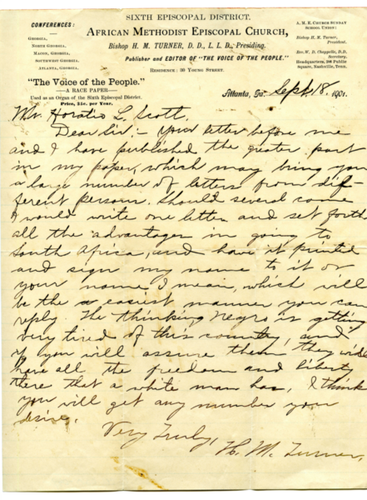 SIXTH EPISCOPAL DISTRICT.
AFRICAN METHODIST EPISCOPAL CHURCH,
Bishop H. M. TURNER, D. D., L. L. D., Presiding.
Publisher and EDITOR OF "THE VOICE OF THE PEOPLE."
RESIDENCE: 30 YOUNG STREET.
CONFERENCES:
GEORGIA,
NORTH GEORGIA,
MACON, GEORGIA,
SOUTHWEST GEORGIA,
ATLANTA, GEORGIA.
A. M. E. CHURCH SUNDAY
SCHOOL UNION:
Bishop H. M. Turner,
President.
Rev. W. D. Chappelle, D.D.
Secretary.
Headquarters: 206 Public
Square, Nashville, Tenn.
"The Voice of the People."
A RACE PAPER
Used as an Organ of the Sixth Episcopal District.
Price, 50c. per Year.
Atlanta, Ga. Sept 18, 1901.
Mr. Horatio L. Scott.
Dear Sir:- Your letter before me
and I have published the greater part
in my paper, which may bring you
a large number of letters from dif-
ferent persons. Should several come
I would write one letter and set forth
all the advantages in going to
South Africa, and have it printed
and sign my name to it or
your name I mean, which will
be the easiest manner you can
reply. The thinking Negro is getting
very tired of this country, and
if you will assure them they will
have all the freedom and liberty
there that a white man has, I think
you will get any number you
desire.
Very Truly,
H. M. Turner.